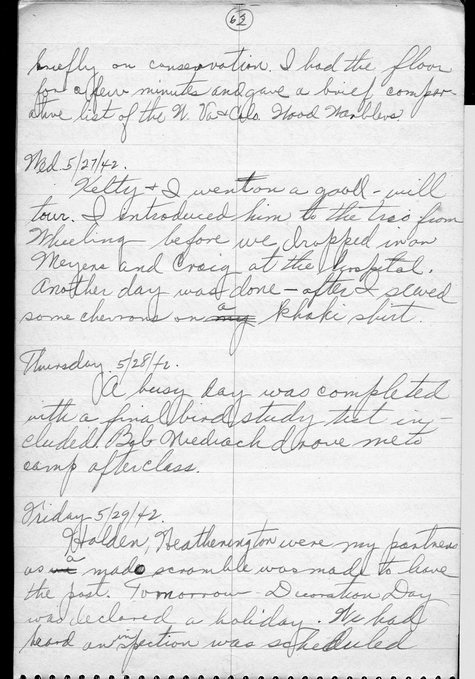 62
briefly on conservation. I had the floor
for a few minutes and gave a brief compar-
ative list of the W. Va & Colo. Wood Warblers.
Wed. 5/27/42.
Kelty & I went on a good-will
tour. I introduced him to the trio from
Wheeling before we dropped in on
Meyers and Craig at the hospital.
Another day was done - after I sewed
some chevrons on a my khaki shirt.
Thursday 5/28/42.
A busy day was completed
with a final bird study test in-
cluded. Bob drove me to
camp after class.
Friday 5/29/42.
Holden, Heatherington were my partners
as a mad scramble was made to leave
the post. Tomorrow - Decoration Day -
was declared a holiday. We had
heard an inspection was scheduled